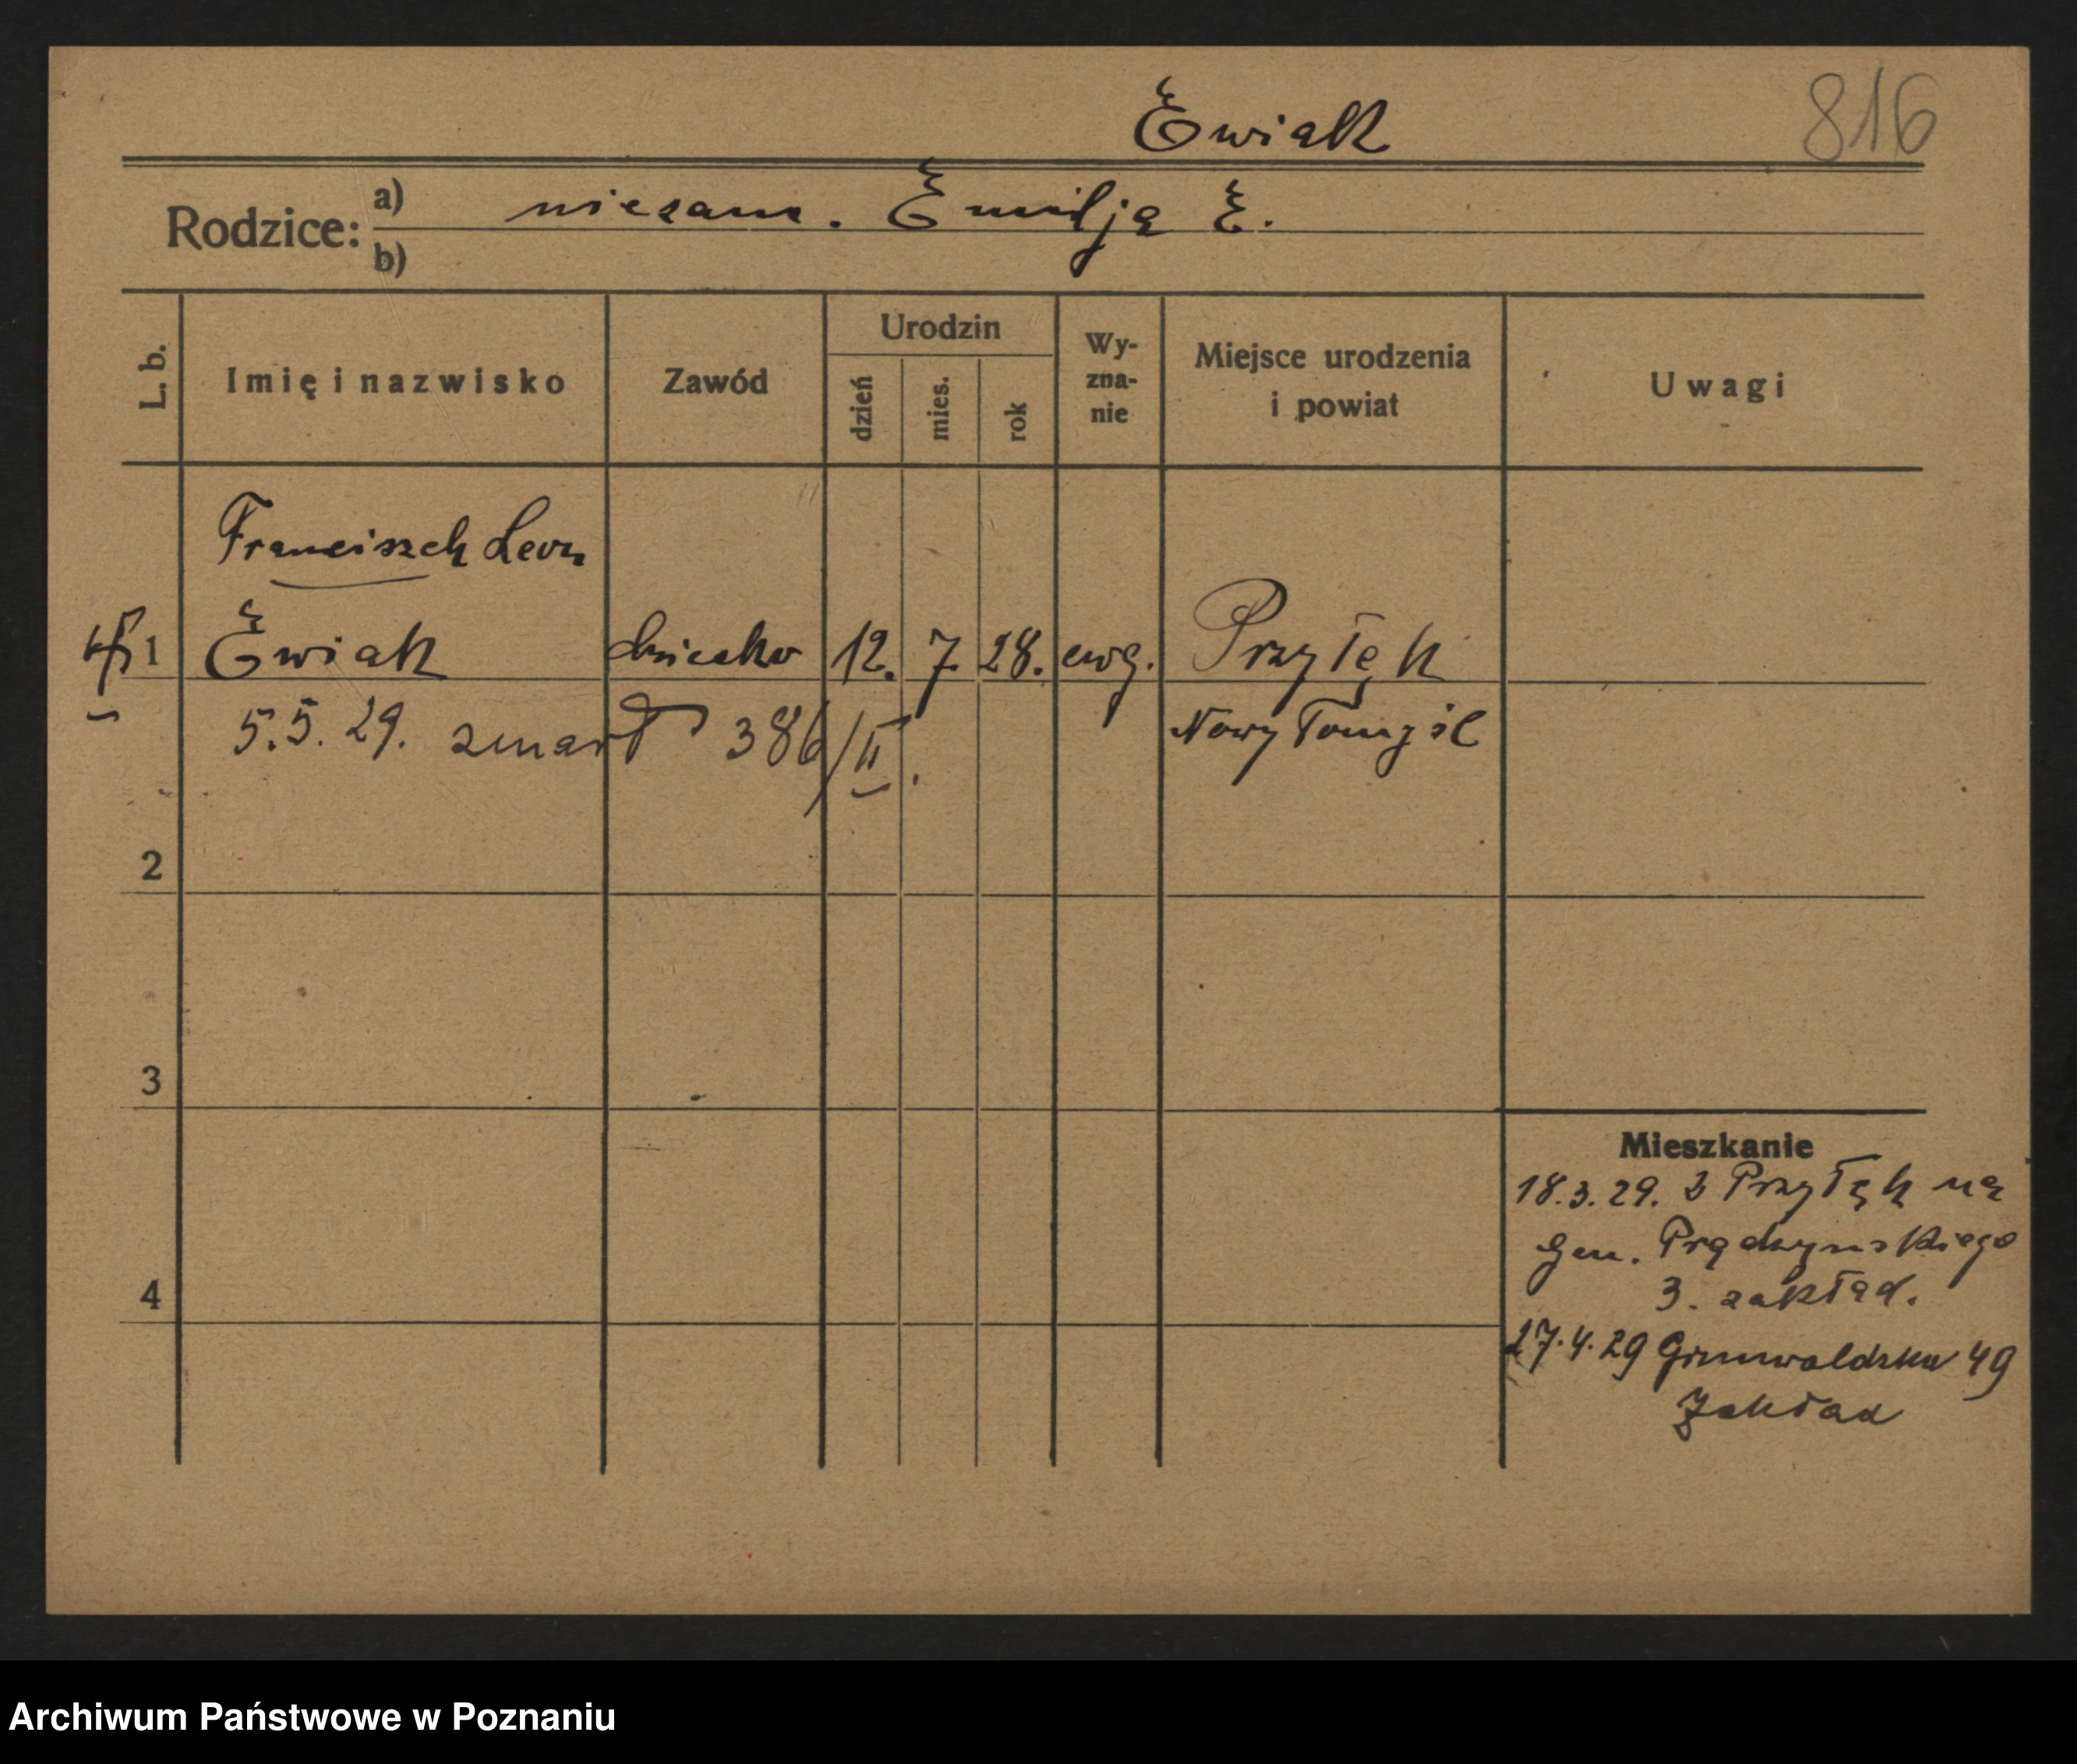 Ewiak
816
Rodzice: a) niezam. Emilja E.
b)
L. b.
Imię i nazwisko
Zawód
Urodzin
dzień
mies.
rok
Wy-
zna-
nie
Miejsce urodzenia
i powiat
Uwagi
Franciszek Leon
1 Ewiak dziecko 12. 7 28. ewg. Przyłęk
5.5.29. zmarł 386/II. Nowy Tomyśl
2
3
4
Mieszkanie
18.3.29. z Przyłęk na
Gen. Prądzyńskiego
3. zakład.
27.4.29 Grunwaldzka 49
Zakład
Archiwum Państwowe w Poznaniu